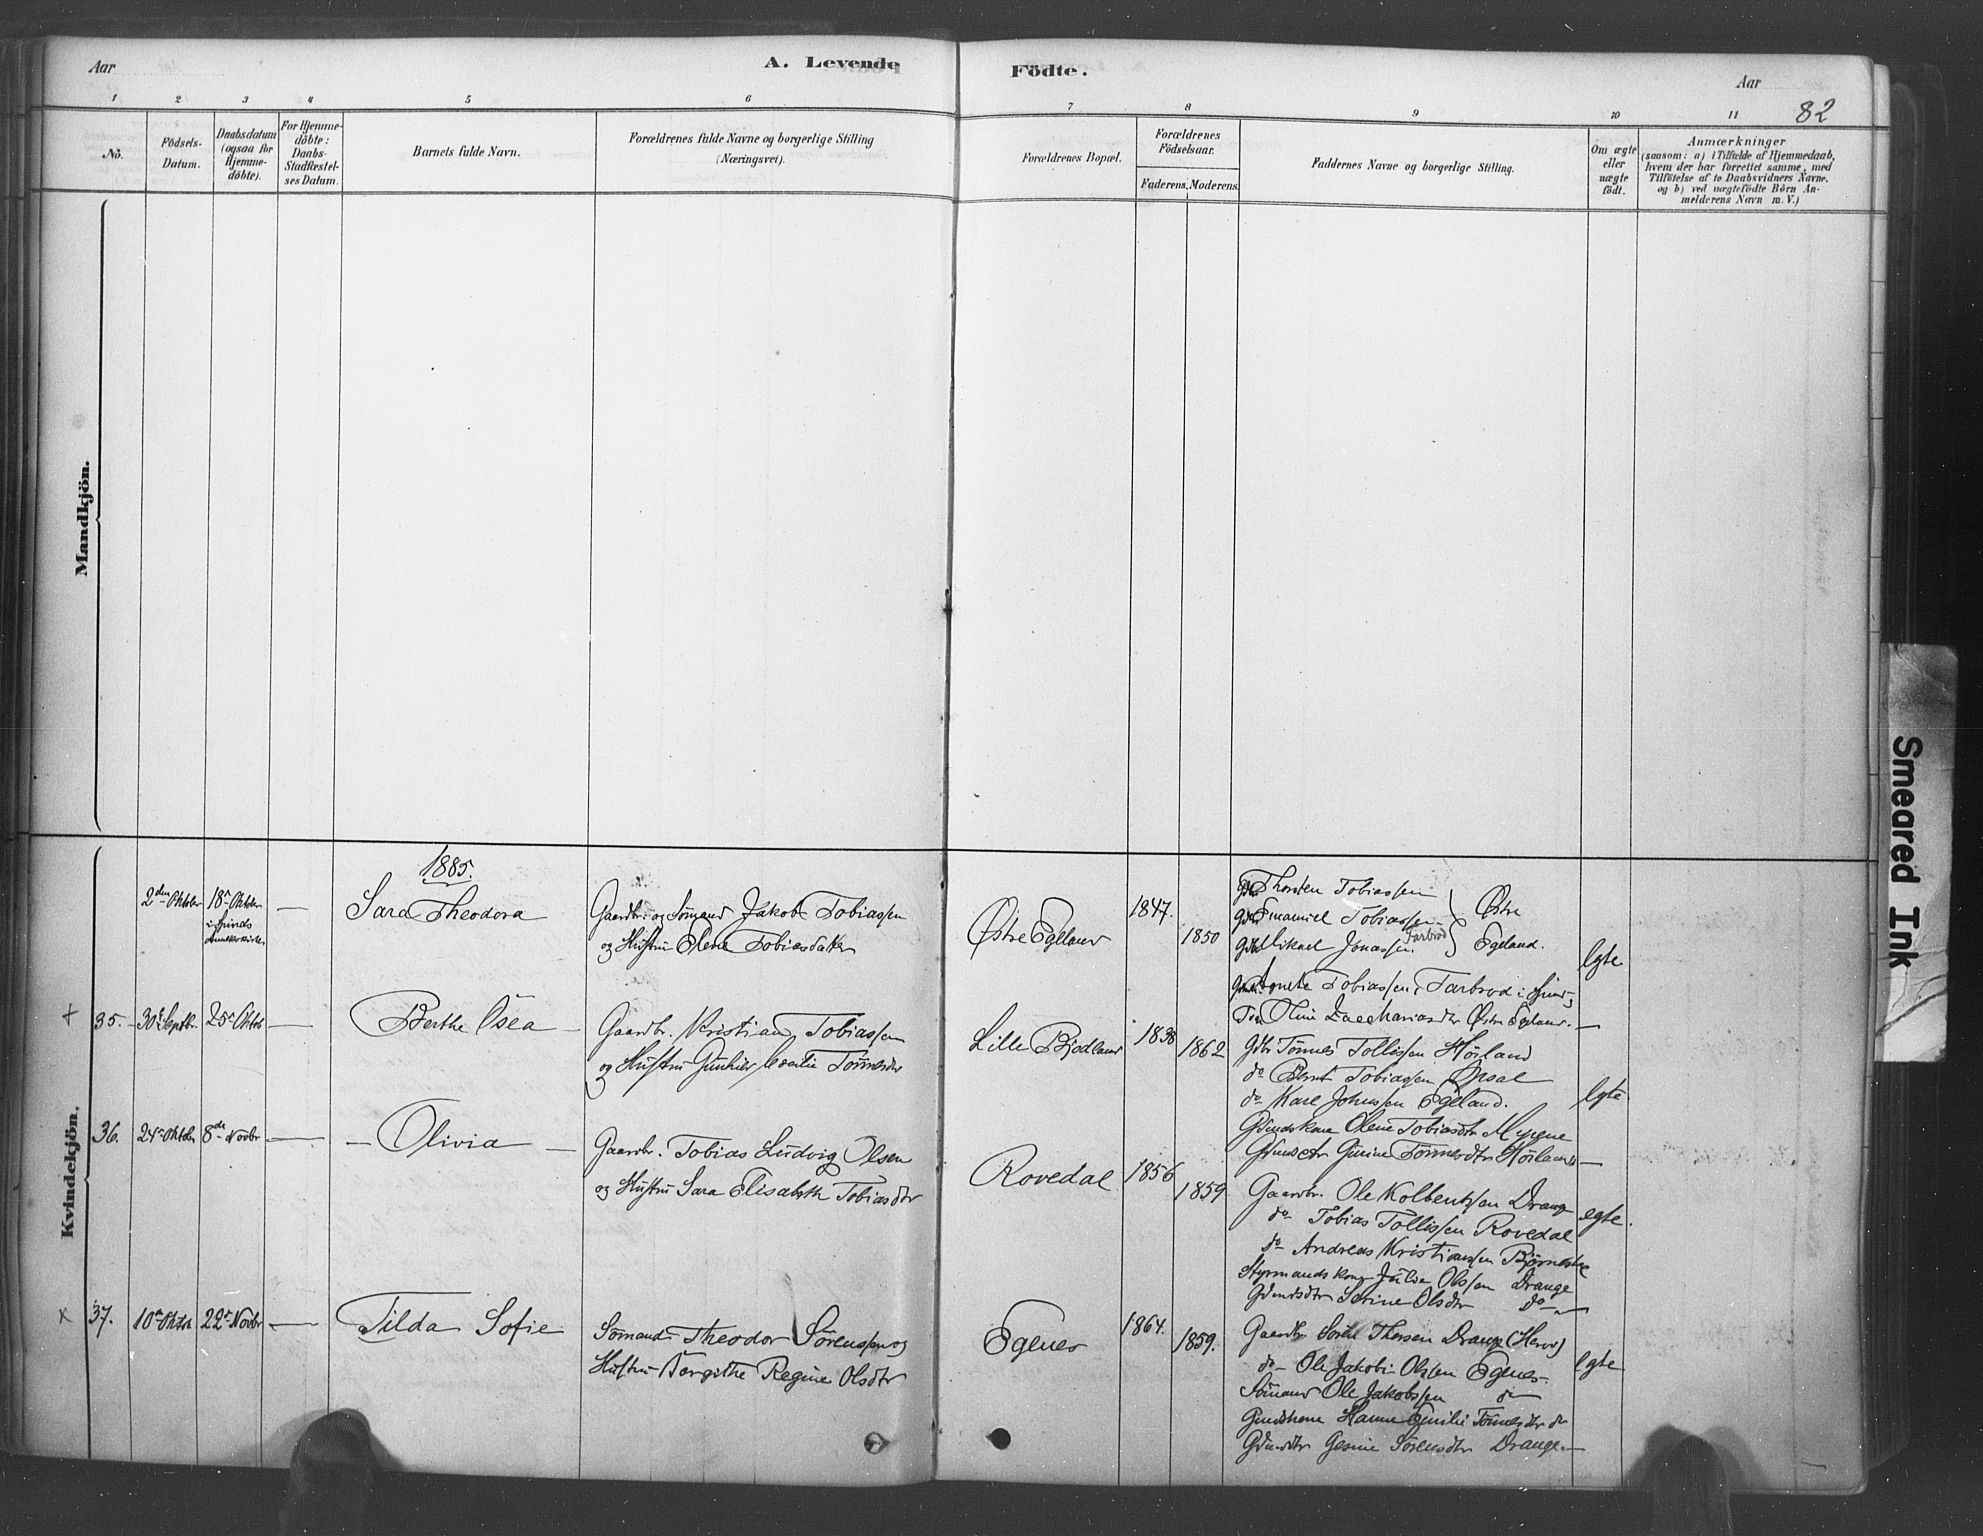 Aar
A. Levende
Födte.
Aar
82
1 2 3 4 5 6 7 8 9 10 11
No.
Födsels-
Datum.
Daabsdatum
(ogsaa for
Hjemme-
döbte).
For Hjemme-
döbte:
Daabs-
Stadfæstel-
ses Datum.
Barnets fulde Navn.
Forældrenes fulde Navne og borgerlige Stilling
(Næringsvei).
Forældrenes Bopæl.
Forældrenes
Födselsaar.
Faderens.
Moderens.
Faddernes Navne og borgerlige Stilling.
Om ægte
eller
uægte
født.
Anmærkninger
(saasom: a) i Tilfælde af Hjemmedaab,
hvem der har forrettet samme, med
Tilförelse af to Daabsvidners Navne.
og b) ved uægtefödte Börn An-
melderens Navn m.V.)
Mandkjön.
Kvindekjön.
1885.
2den Oktober
18n Oktober
Sara Theodora
Gaardbr. og Sömand Jakob Tobiassen
og Hustru Elene Tobiasdatter
Østre Egeland
1847.
1850
Thorsten Tobiassen
Emanuel Tobiassen
Mikael Jonassen Farbrod
Østre
Egeland.
Agnete Tobiassen, Farbrod i
Oline Zacchariasdtr Østre Egeland.
egte
+ 35. 30te Septbr. 25n Oktob
Berthe Osea
Gaardbr. Kristian Tobiassen
og Hustru Tönnesdtr
Lille Bjodland
1838
1862
Gdbr Tönnes Tollissen Höiland
do Bernt Tobiassen Opsal
do Karl Johnssen Egeland.
Gdmdskone Olene Tobiasdtr Myrene
Gdmdsdtr Gurine Tönnesdtr Höiland
egte
36. 24n Oktober 8de Novbr
Olivia
Gaardbr. Tobias Ludvig Olsen
og Hustru Sara Elisabeth Tobiasdtr
Rovedal
1856
1859
Gaardbr. Ole Kolbentsen Drange
do Tobias Tollissen Rovedal
do Andreas Kristiansen
Styrmandskone Julie Olssen Drange
Gdmdsdtr Serine Olsdtr do
egte.
x 37. 10de Oktob 22n Novbr
Tilda Sofie
Sömand Theodor Sörenssen og
Hustru Bergithe Regine Olsdtr
Egenes
1864.
1859.
Gaardbr. Sören Thorsen Drange
do Ole Jakob Olssen Egenes.
Sömand Ole Jakobssen do
Gmdskone Hanne Emilie Tönnesdtr do
Gdmdsdtr Gesine Sörensdtr Drange.
egte
Smeared Ink